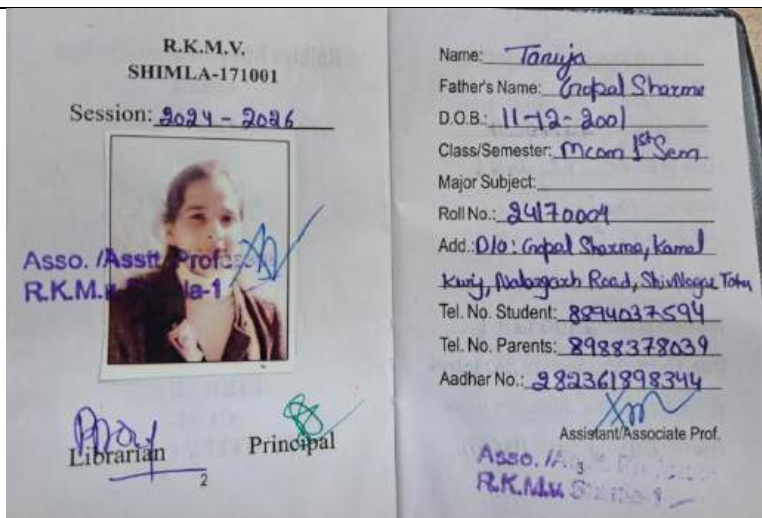 R.K.M.V.
SHIMLA-171001
Session: 2024 - 2026
Asso. /Asstt. Profess
R.K.M.
la-1
Librarian
Principal
2
Name: Tanuja
Father's Name: Gopal Sharma
D.O.B.: 11-12-2001
Class/Semester: Mcom 1st Sem
Major Subject:
Roll No.: 24170004
Add.: D/o: Gopal Sharma, Kamal
Road, Totu
Tel. No. Student: 8894037594
Tel. No. Parents: 8988378039
Aadhar No.: 282361898344
Assistant/Associate Prof.
Asso. /As
3
R.K.M.V.